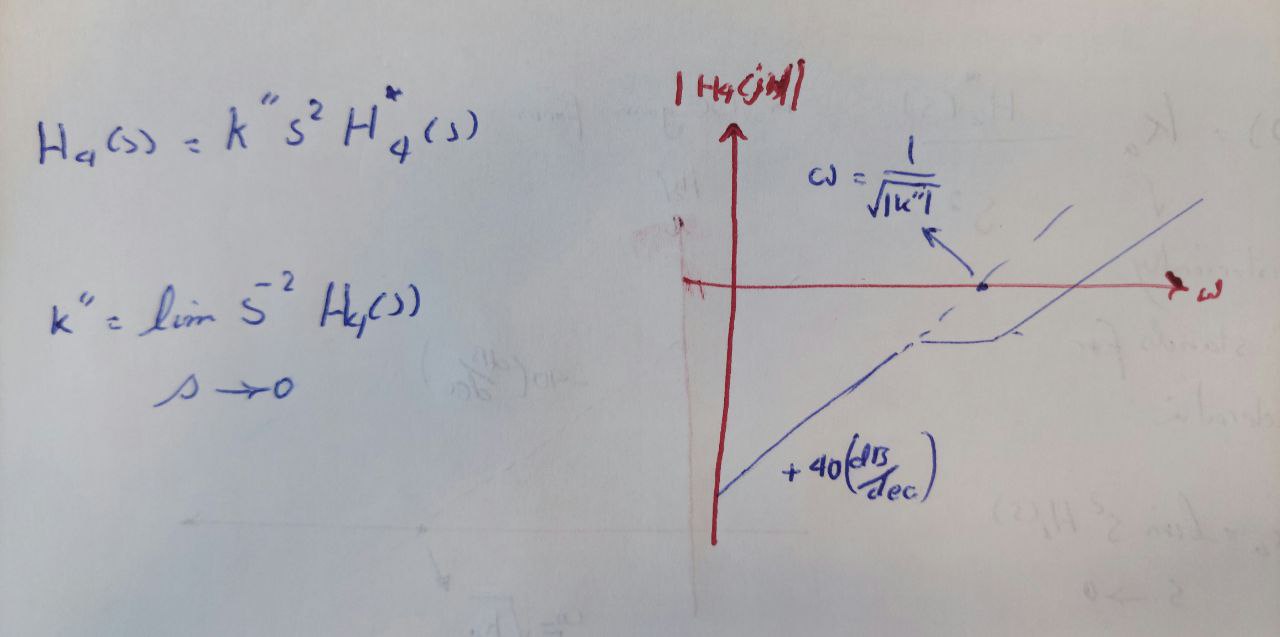 H₄(s) = k″ s² H₄*(s)
k″ = lim s⁻² H₄(s)
s → 0
|H₄(jω)|
ω = 1/√|k″|
ω
+40(dB/dec)